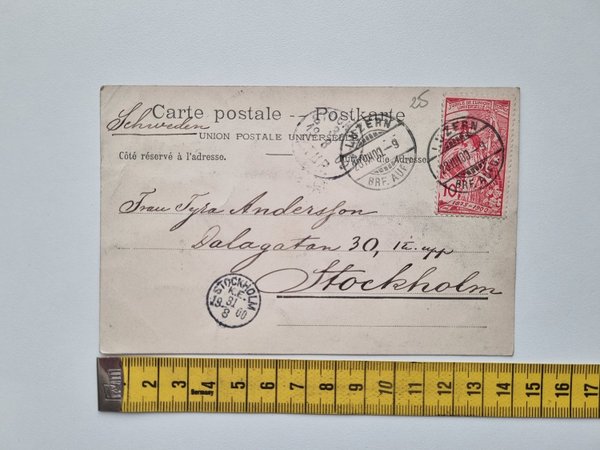 25
Carte postale -- Postkarte
Schweden
UNION POSTALE UNIVERSELLE
Côté réservé à l'adresse.
die Adresse
LUZERN
BRF. AUF
LUZERN
BRF. AUF
10
Frau Tyra Andersson
Dalagatan 30, II. upp
Stockholm
STOCKHOLM
K.E.
31
19 00
8
1 2 3 4 5 6 7 8 9 10 11 12 13 14 15 16 17
Germany